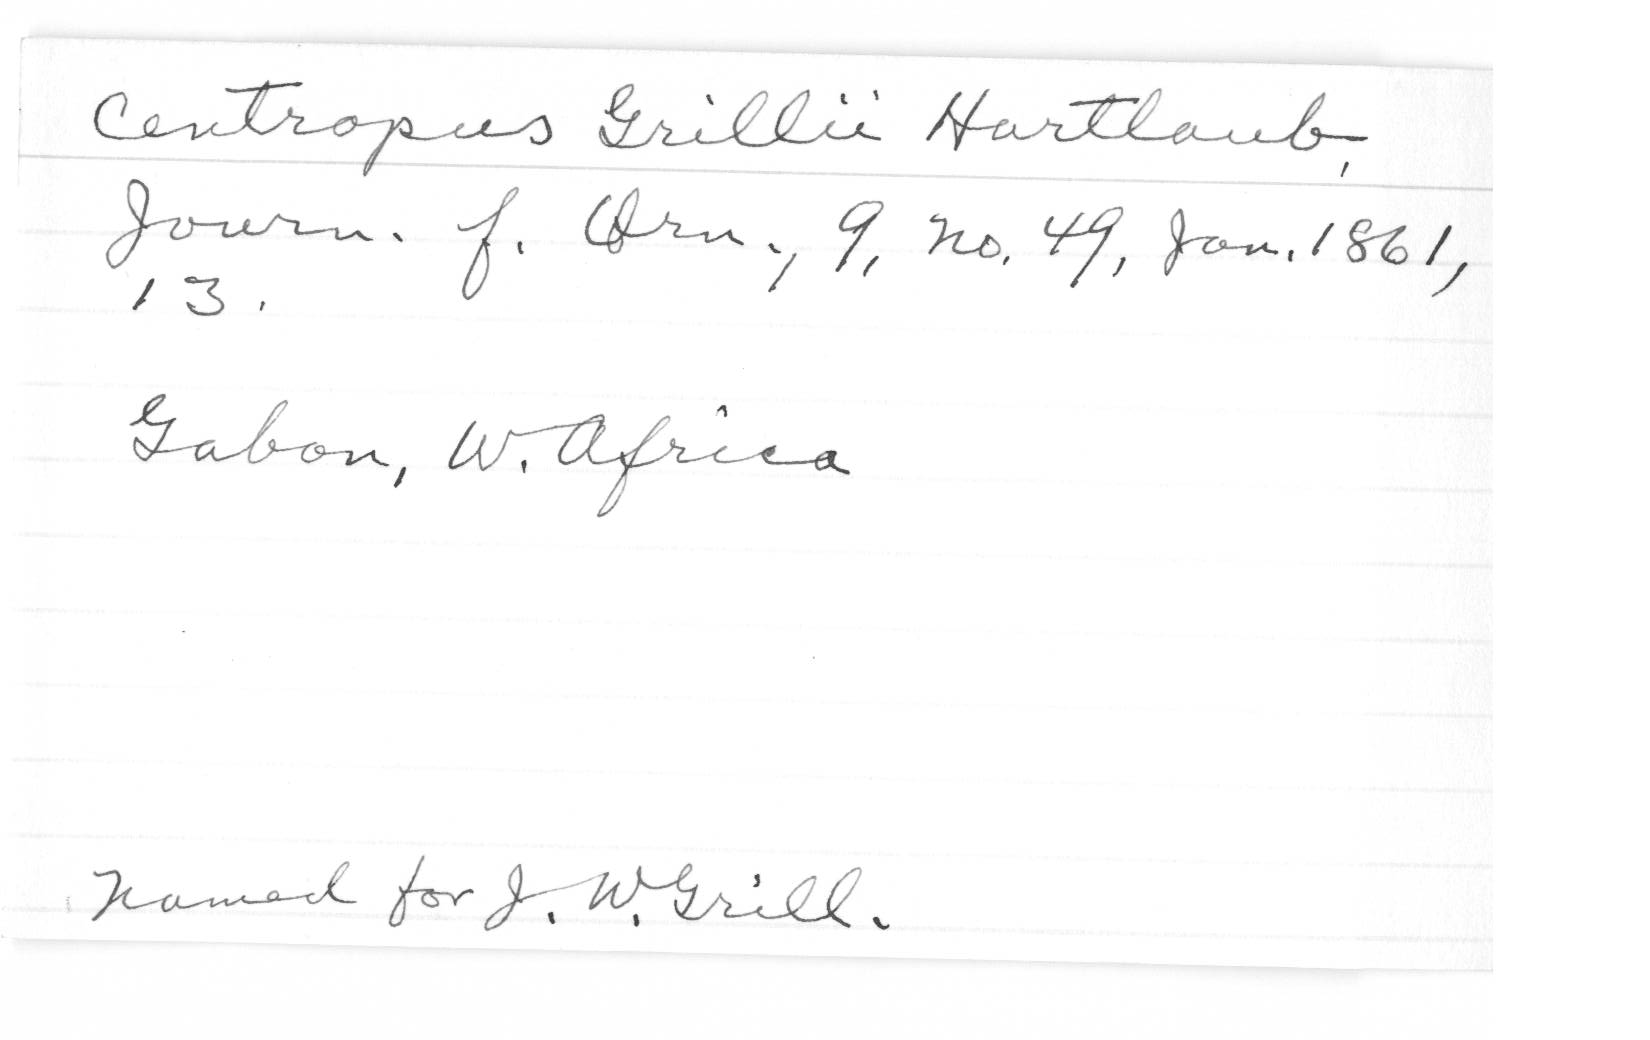 Centropus Grillii Hartlaub,
Journ. f. Orn., 9, no. 49, Jan. 1861,
13.
Gabon, W. Africa
Named for J. W. Grill.